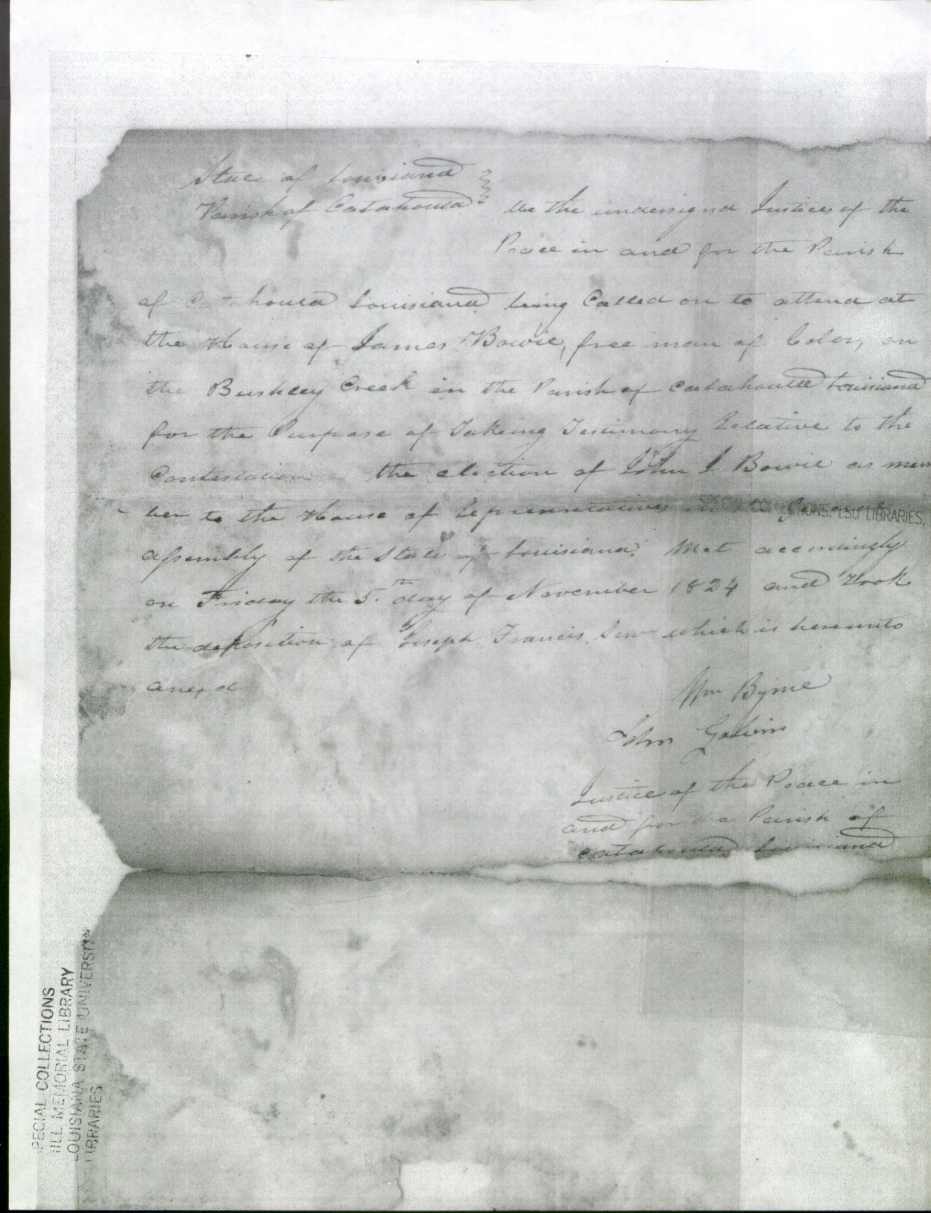 State of Louisiana
Parish of Catahoula We the undersigned Justices of the
Peace in and for the Parish
of Catahoula Louisiana being Called on to attend at
the House of James Bowie, free man of Color, on
the Bushley Creek in the Parish of Catahoula Louisiana
for the Purpose of Takeing Testimony Relative to the
Contestation the election of John J. Bowie as mem
ber to the House of Representatives General
assembly of the State of Louisiana. Met accordingly
on Friday the 5.th day of November 1824 and Took
the deposition of Joseph Francis which is hereunto
anexd
Wm Byrne
John
Justice of the Peace in
and for the Parish of
Catahoula Louisiana
LSU LIBRARIES,
PECIAL COLLECTIONS
ILL MEMORIAL LIBRARY
LOUISIANA STATE UNIVERSITY
LIBRARIES